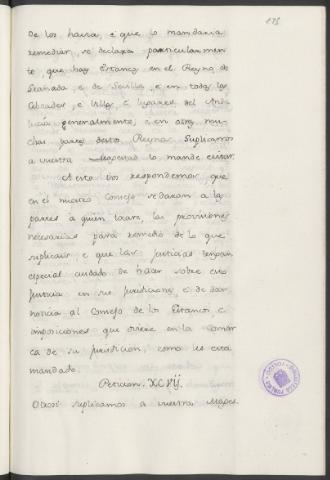 175
de los havia, e que lo mandaria
remediar, se declara particularmen
te que hay Estanco en el Reyno de
Granada, e de Sevilla, e en todas las
Cibdades, e Villas, e lugares del Anda
lucia generalmente, e en otras mu-
chas partes destos Reynos. Suplicamos
a vuestra Magestad lo mande quitar.
A esto vos respondemos, que
en el nuestro Consejo se daran a las
partes a quien tocare, las provisiones
necesarias para remedio de lo que
suplicais, e que las justicias tengan
especial cuidado de hacer sobre ello
justicia en su jurisdicion, e de dar
noticia al Consejo de los Estancos, e
imposiciones que oviere en la comar
ca de su jurisdicion, como les esta
mandado.
Peticion. XCVIJ.
Otrosi suplicamos a vuestra Mages